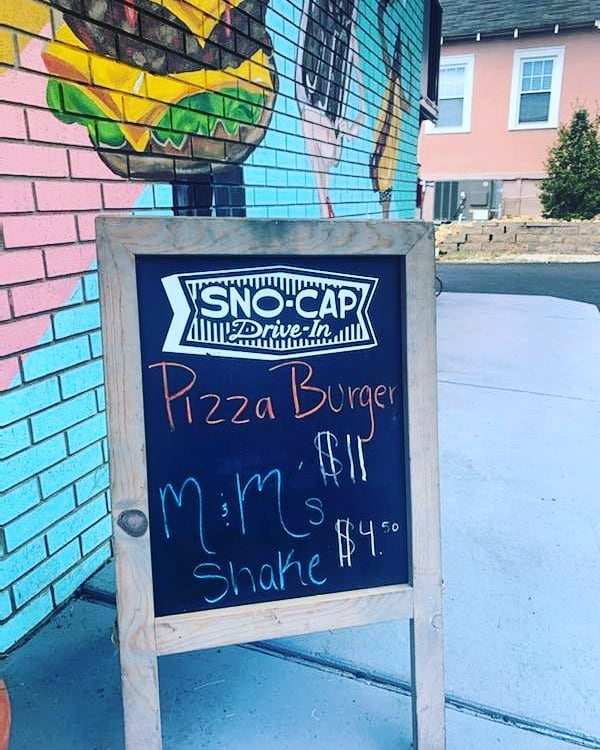 SNO-CAP
Drive-In
Pizza Burger
$11
M&M's
Shake $4.50